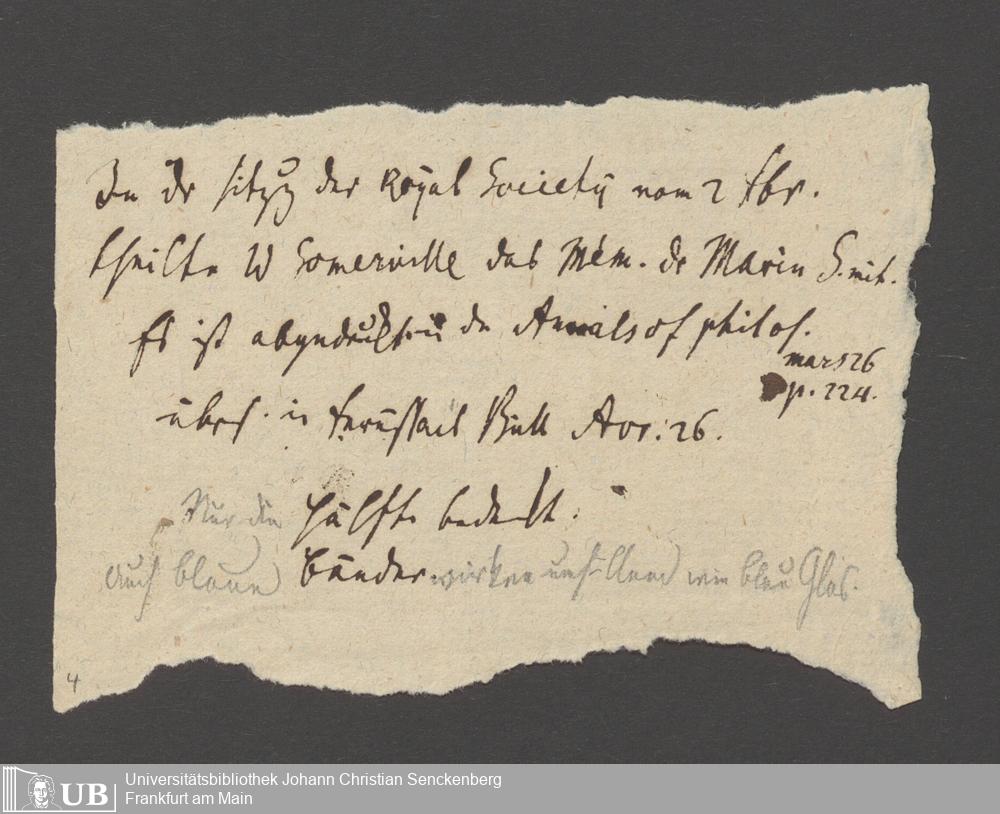 In der Sitzung der Royal Society vom 2 Fbr.
theilte W Somerville das Mém. der Marie S. mit.
Es ist abgedruckt in den Annals of philos.
mars 26
p. 224.
übers. in Ferussacs Bull Avr: 26.
Nur die Hälfte bedeckt.
auch blaue Bänder wirken umhüllend wie blau Glas.
4
UB
Universitätsbibliothek Johann Christian Senckenberg
Frankfurt am Main